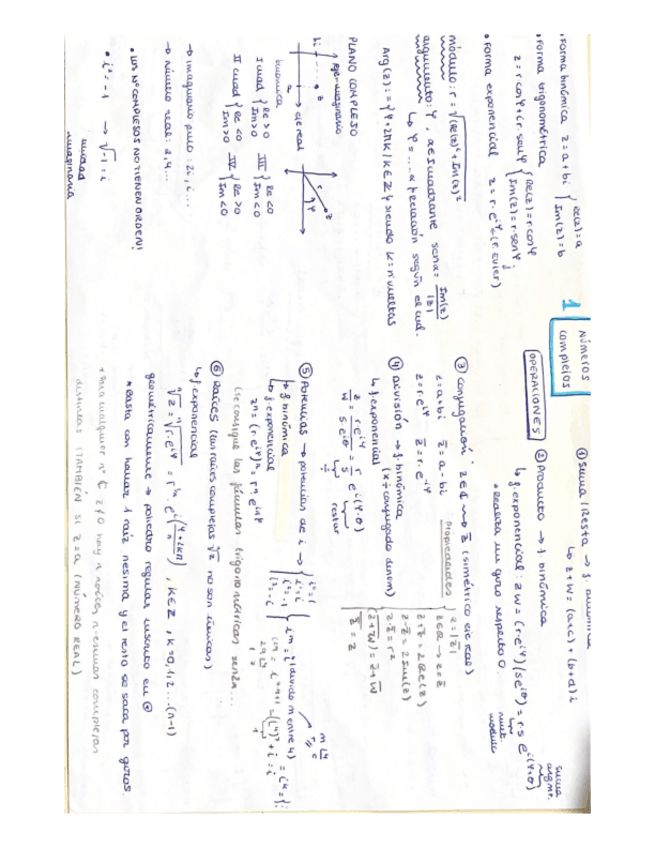 1 números complejos
• Forma binómica z = a + bi { Re(z) = a
Im(z) = b
• Forma trigonométrica
z = r cosφ + i r·senφ { Re(z) = r cosφ
Im(z) = r·senφ ;
• Forma exponencial z = r·e^{iφ} (r. euler)
módulo: r = √(Re(z)² + Im(z)²
argumento: φ, α ∈ I cuadrante sen α = Im(z)/|z|
↳ φ = ... α relación según el cud.
Arg(z) := {φ + 2πk / k ∈ Z} siendo k = nº vueltas
PLANO COMPLEJO
bi
eje imaginario
z
a
eje real
r
φ
binómica
I cuad { Re > 0
Im > 0
III { Re < 0
Im < 0
II cuad { Re < 0
Im > 0
IV { Re > 0
Im < 0
→ imaginario puro: 2i, i...
→ número real: 2, 4...
• LOS Nº COMPLEJOS NO TIENEN ORDEN!
• i² = -1 → √-1 = i
unidad
imaginaria
OPERACIONES
① Suma / Resta → f. binómica
↳ z + w = (a + c) + (b + d) i
② Producto → f. binómica
↳ f. exponencial: zw = (r·e^{iφ})(s e^{iθ}) = r·s e^{i(φ+θ)}
mult.
modulos
suma
argmt.
• Realiza un giro respecto 0.
③ Conjugación: z ∈ ℂ → z̄ (simétrico eje real)
z = a + bi z̄ = a - bi
z = r·e^{iφ} z̄ = r·e^{-iφ}
Propiedades
z = |z̄|
z ∈ R → z = z̄
z + z̄ = 2Re(z)
z - z̄ = 2 Im(z)
z·z̄ = r²
④ División → f. binómica
(x conjugado denom)
↳ f. exponencial
z/w = r e^{iφ}/s e^{iθ} = r/s e^{i(φ-θ)}
÷
restar
⑤ Potencias → potencias de i → { i⁰ = 1
i¹ = i
i² = -1
i³ = -i
↳ f. binómica
↳ f. exponencial
zⁿ = (r·e^{iφ})ⁿ = rⁿ e^{inφ}
(divido m entre 4)
(se consigue las fórmulas trigonométricas sen2α...
⑥ Raíces (las raíces complejas ⁿ√z no son únicas)
↳ f. exponencial
ⁿ√z = ⁿ√r·e^{iφ} = r^{1/n} e^{i(φ+2kπ)/n}, k ∈ Z, k = 0, 1, 2... (n-1)
geométricamente → poliedro regular inscrito en
• Basta con hallar 1 raíz nesima y el resto se saca por giros.
• Para cualquier nº ℂ z ≠ 0 hay n raíces n-esimas complejas
distintas (TAMBIÉN SI z = a (NÚMERO REAL)